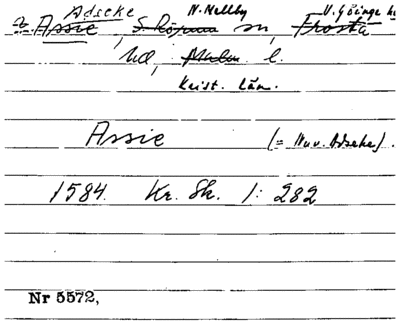 Adseke N. Mellby V. Göinge h
? Assie, S. Rörum sn, Frosta
hd, Malm. l.
Krist. län.
Assie (= Nuv. Adseke).
1584. Kr. Sk. 1: 282
Nr 5572,